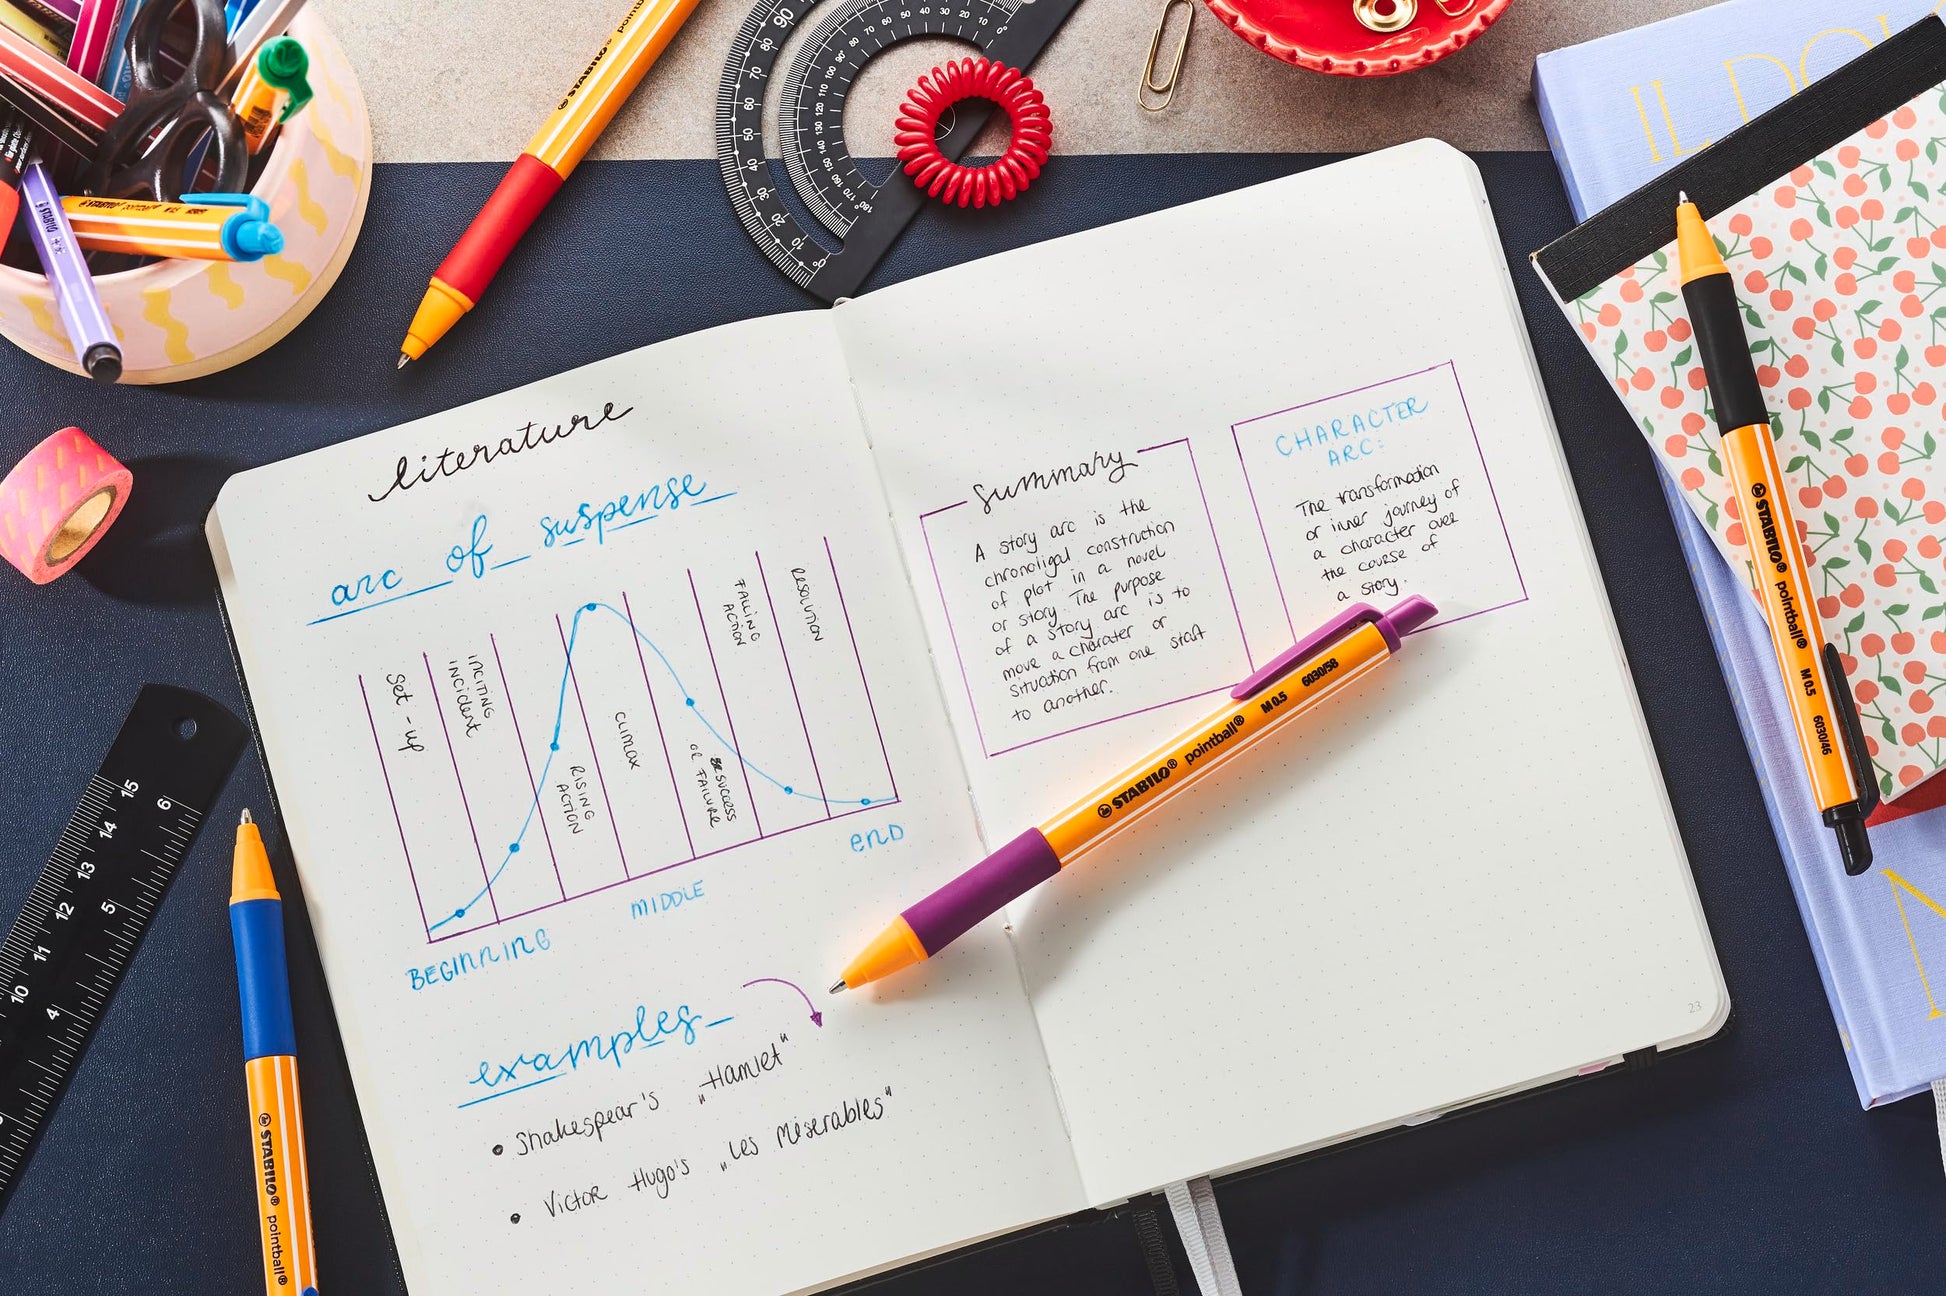 literature
arc of suspense
Set-up
INCITING
INCIDENT
RISING
ACTION
CLIMAX
SUCCESS
OR FAILURE
FALLING
ACTION
RESOLUTION
BEGINNING
MIDDLE
END
examples
• Shakespear's „Hamlet"
• Victor Hugo's „Les Miserables"
summary
A story arc is the
chronoligal construction
of plot in a novel
or story. The purpose
of a story arc is to
move a charater or
situation from one start
to another.
CHARACTER
ARC:
The transformation
or inner journey of
a character over
the course of
a story.
23
STABILO® pointball® M 0.5 6030/58
STABILO® pointball® M 0.5 6030/46
STABILO® pointball®
STABILO® point
STABILO pointball
15
14
13
12
11
10
6
5
4
90
80
70
60
50
40
30
20
10
0°